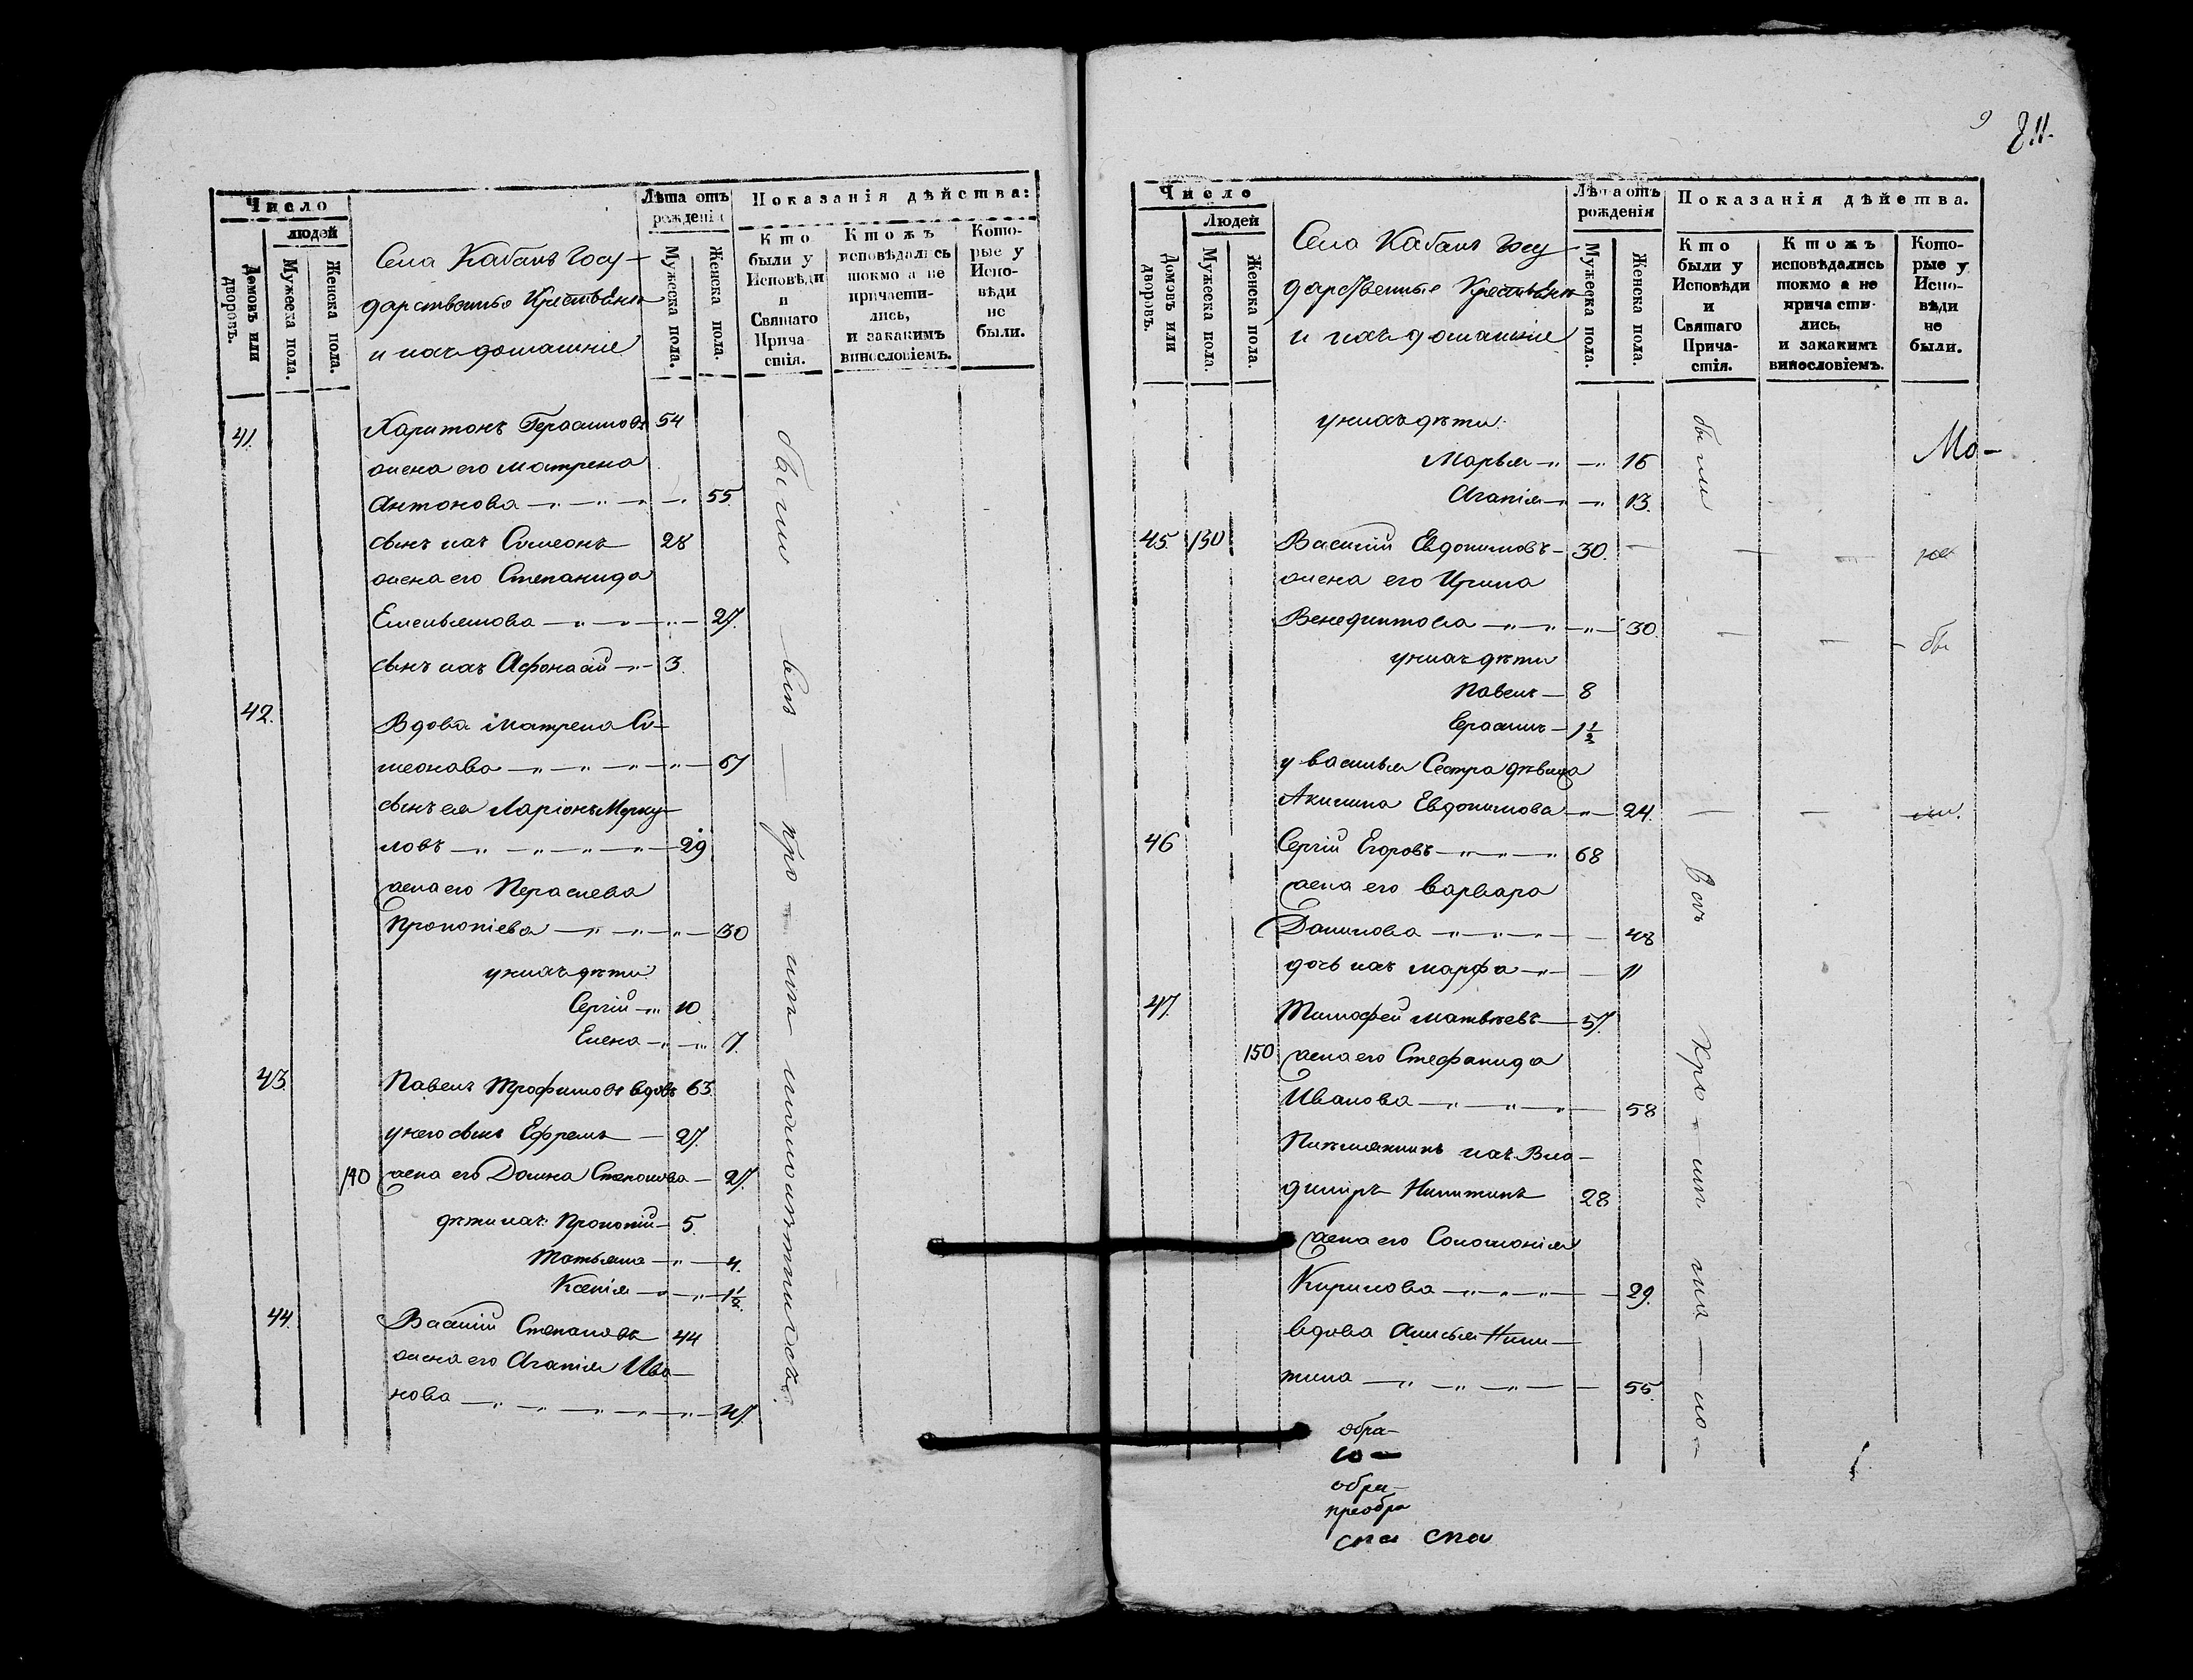 Число
людей
Домовъ или дворовъ.
Мужеска пола.
Женска пола.
Села Кабанъ Госу-
дарственные Крестьяне
и ихъ домашніе
Лѣта отъ рожденія
Мужеска пола.
Женска пола.
Показанія дѣйства:
Кто были у Исповѣди и Святаго Прича-стія.
Ктожъ исповѣдались токмо а не причасти-лись, и закакимъ винословіемъ.
Кото-рые у Испо-вѣди не были.
41. Харитонъ Герасимовъ 54
жена его Матрена
Антонова 55.
сынъ ихъ Симеонъ 28
жена его Степанида
Емельянова 27.
сынъ ихъ Афонасій 3.
42. Вдова Матрена Си-
меонова 67
сынъ ея Ларіонъ Мерку-
ловъ 29
жена его Параскева
Прокопіева 30
у нихъ дѣти
Сергій 10
Елена 7.
43 Павелъ Трофимовъ вдовъ 63.
у него сынъ Ефремъ 27.
140 жена его Домна Степанова 27.
дѣти ихъ Прокопій 5.
Татьяна 4.
Ксенія 1½.
44. Василій Степановъ 44
жена его Агапія Ива-
нова 47.
были всѣ — кро-мѣ малолѣтнихъ
9
Число
Людей
Домовъ или дворовъ.
Мужеска пола.
Женска пола.
Села Кабанъ Госу-
дарственные Крестьяне
и ихъ домашніе
Лѣта отъ рожденія
Мужеска пола.
Женска пола.
Показанія дѣйства.
Кто были у Исповѣди и Святаго Прича-стія.
Ктожъ исповѣдались токмо а не прича сти-лись. и закакимъ винословіемъ.
Кото-рые у Испо-вѣди не были.
у нихъ дѣти:
Марья 16
Мо-
Агапія 13.
были
45. 130 Василій Евдокимовъ 30. не
жена его Ирина
Венедиктова 30. бы
у нихъ дѣти
Павелъ 8
Герасимъ 1½
у Василья Сестра дѣвица
Акилина Евдокимова 24. ли.
46 Сергій Егоровъ 68
жена его Варвара
Данилова 48
дочь ихъ Марфа 11
47. Тимофей Матвѣевъ 57.
150 жена его Стефанида
Иванова 58
Племянникъ ихъ Вла-
диміръ Никитинъ 28
жена его Соломонія
Кирилова 29.
вдова Анисья Ники-
тина 55.
всѣ Кро-мѣ ма-ло-
обра-
со-
обра-
преобра
спа спа